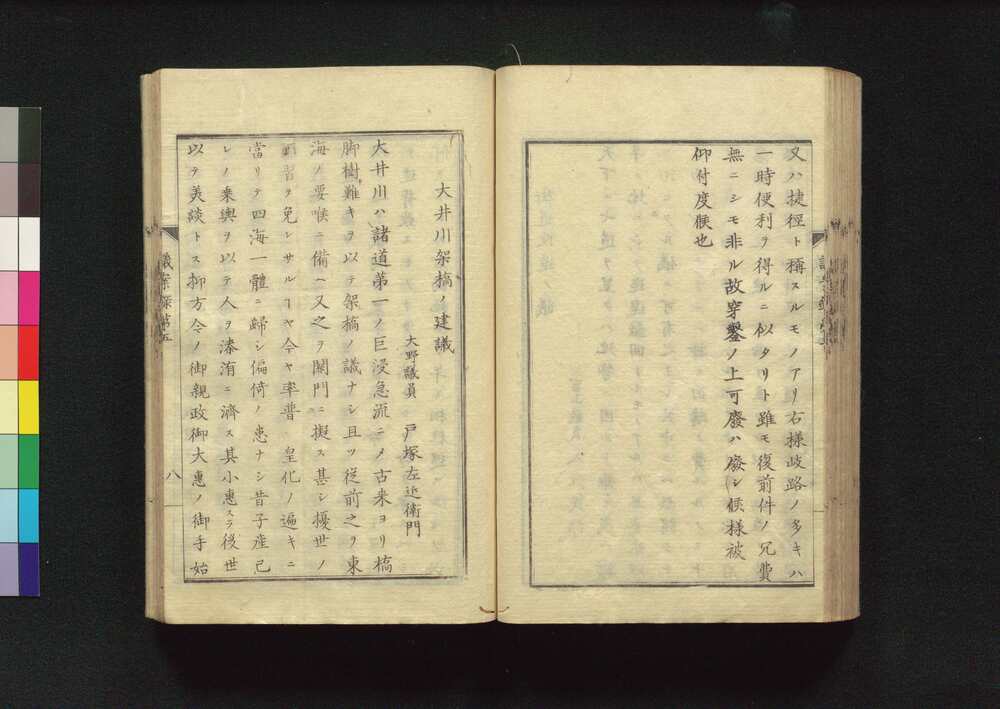 又ハ捷徑ト稱スルモノアリ右様岐路ノ多キハ
一時便利ヲ得ルニ似タリト雖モ復前件ノ冗費
無ニシモ非ル故穿鑿ノ上可廢ハ廢シ候様被
仰付度候也
大井川架橋ノ建議
大野議員 戸塚左近衛門
大井川ハ諸道第一ノ巨浸急流ニメ古来ヨリ橋
脚樹難キヲ以テ架橋ノ議ナシ且ツ従前之ヲ東
海ノ要喉ニ備へ又之ヲ關門ニ擬ス甚シ擾世ノ
習ヲ免レサルヿヤ今ヤ率普
皇化ノ遍キニ
當リテ四海一體ニ歸シ偏倚ノ患ナシ昔子産己
レノ乗輿ヲ以テ人ヲ溱洧ニ濟ス其小惠スラ後世
以テ美談トス抑方今ノ御親政御大惠ノ御手始
議案録第五
八